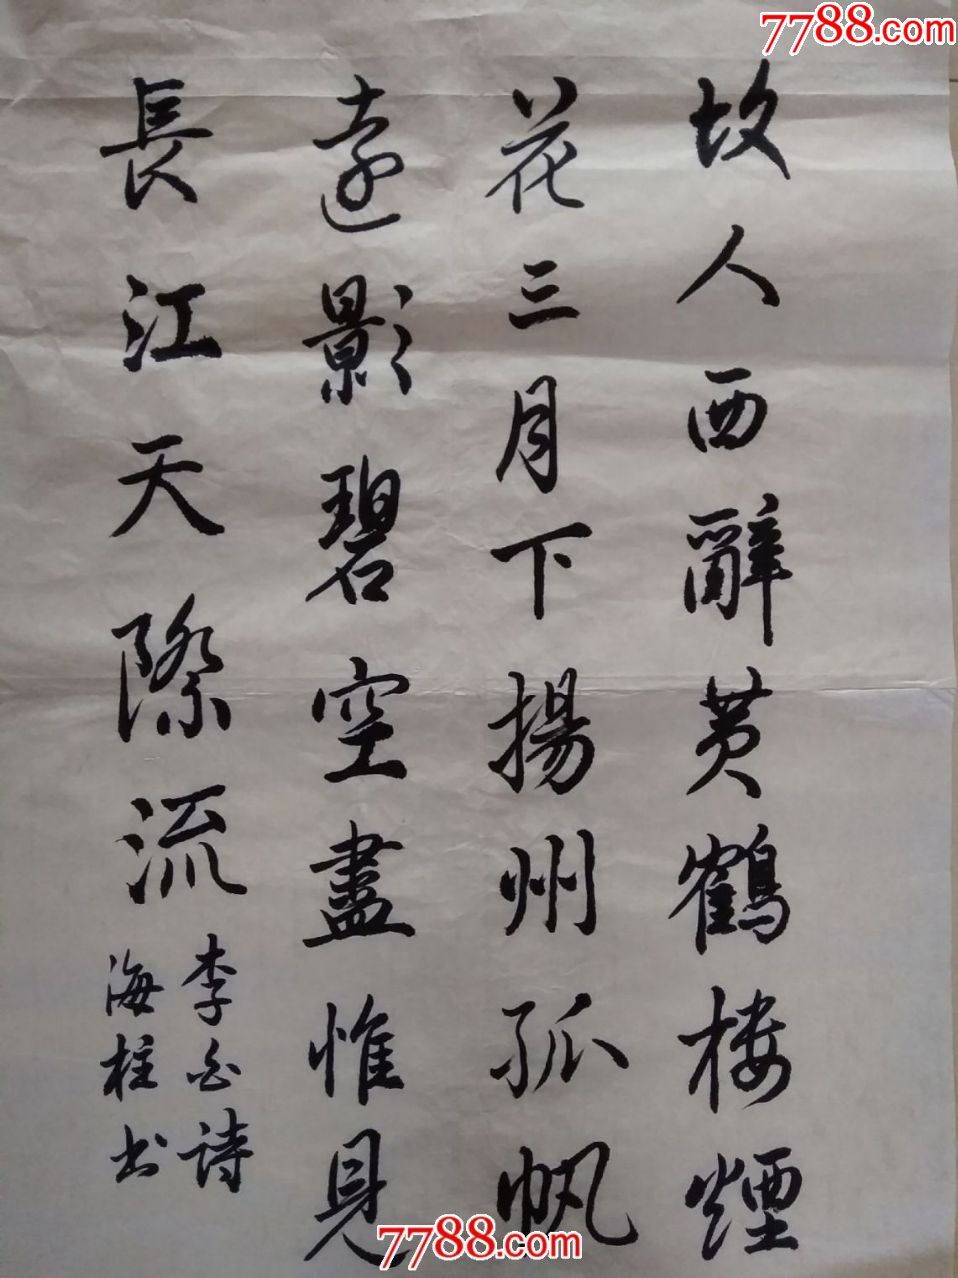 7788.com
故人西辭黄鶴楼煙
花三月下揚州孤帆
遠影碧空盡惟見
長江天際流
李白詩
海柱书
7788.com